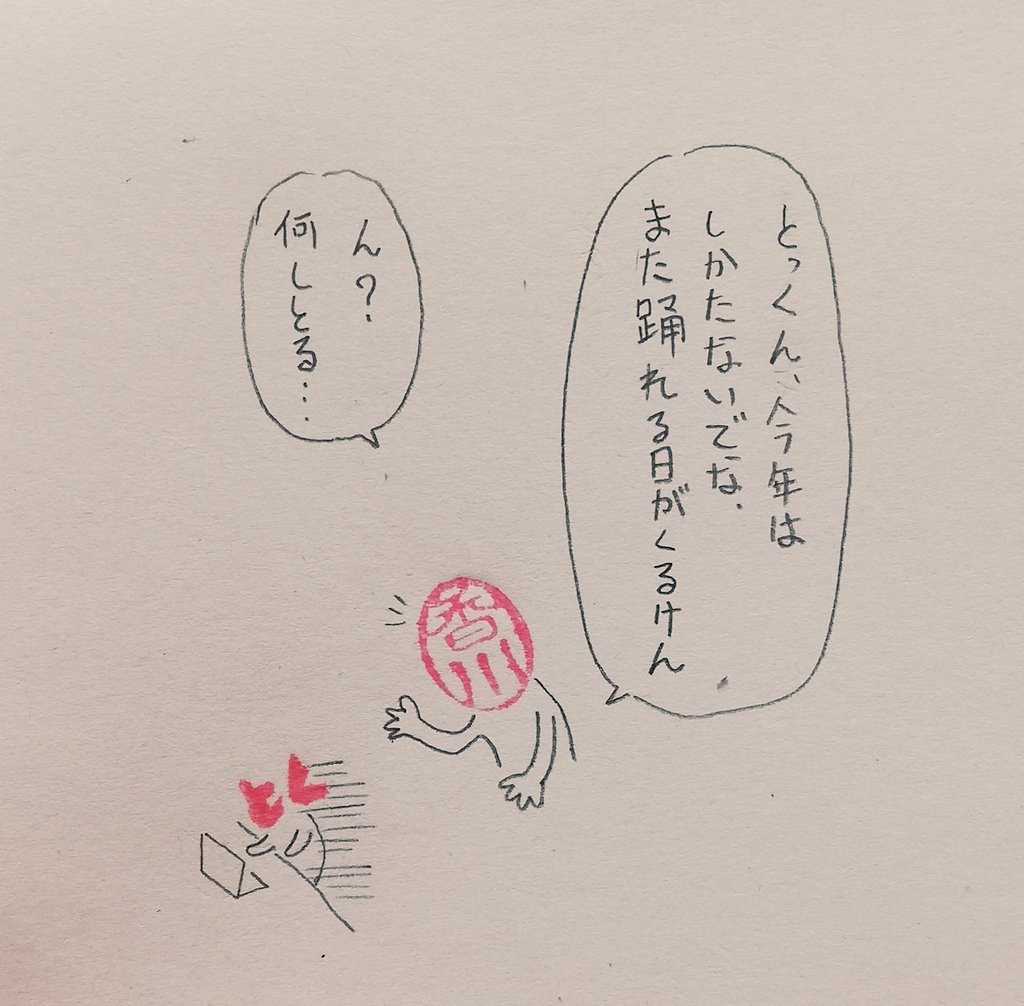 とっくん、今年は
しかたないでな.
また踊れる日がくるけん
ん?
何しとる...
香川
とし